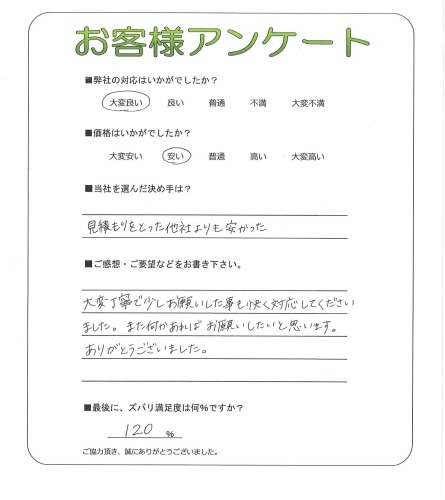 お客様アンケート
■弊社の対応はいかがでしたか?
大変良い 良い 普通 不満 大変不満
■価格はいかがでしたか?
大変安い 安い 普通 高い 大変高い
■当社を選んだ決め手は?
見積もりをとった他社よりも安かった
■ご感想・ご要望などをお書き下さい。
大変丁寧で少しお願いした事も快く対応してください
ました。また何かあればお願いしたいと思います。
ありがとうございました。
■最後に、ズバリ満足度は何%ですか?
120 %
ご協力頂き、誠にありがとうございました。